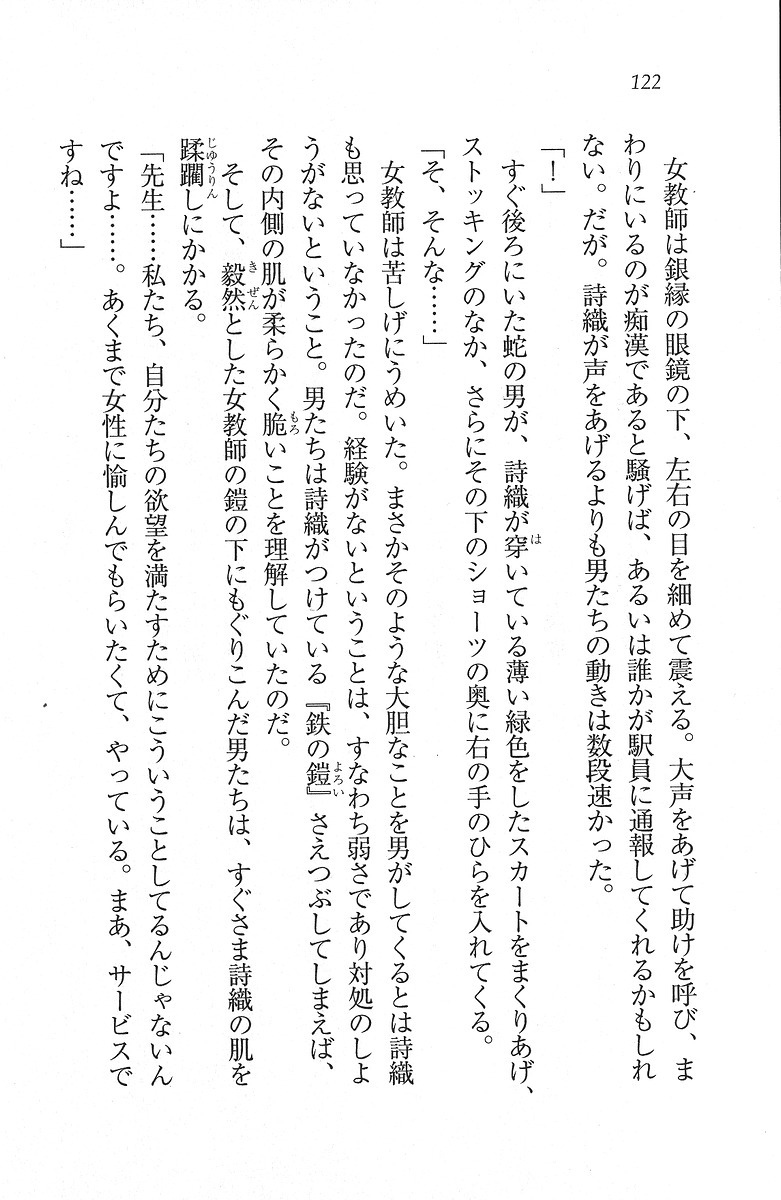 122
女教師は銀縁の眼鏡の下、左右の目を細めて震える。大声をあげて助けを呼び、ま
わりにいるのが痴漢であると騒げば、あるいは誰かが駅員に通報してくれるかもしれ
ない。だが。詩織が声をあげるよりも男たちの動きは数段速かった。
「！」
すぐ後ろにいた蛇の男が、詩織が穿いている薄い緑色をしたスカートをまくりあげ、
ストッキングのなか、さらにその下のショーツの奥に右の手のひらを入れてくる。
「そ、そんな……」
女教師は苦しげにうめいた。まさかそのような大胆なことを男がしてくるとは詩織
も思っていなかったのだ。経験がないということは、すなわち弱さであり対処のしよ
うがないということ。男たちは詩織がつけている『鉄の鎧』さえつぶしてしまえば、
その内側の肌が柔らかく脆いことを理解していたのだ。
そして、毅然とした女教師の鎧の下にもぐりこんだ男たちは、すぐさま詩織の肌を
蹂躙しにかかる。
「先生……私たち、自分たちの欲望を満たすためにこういうことしてるんじゃないん
ですよ……。あくまで女性に愉しんでもらいたくて、やっている。まあ、サービスで
すね……」